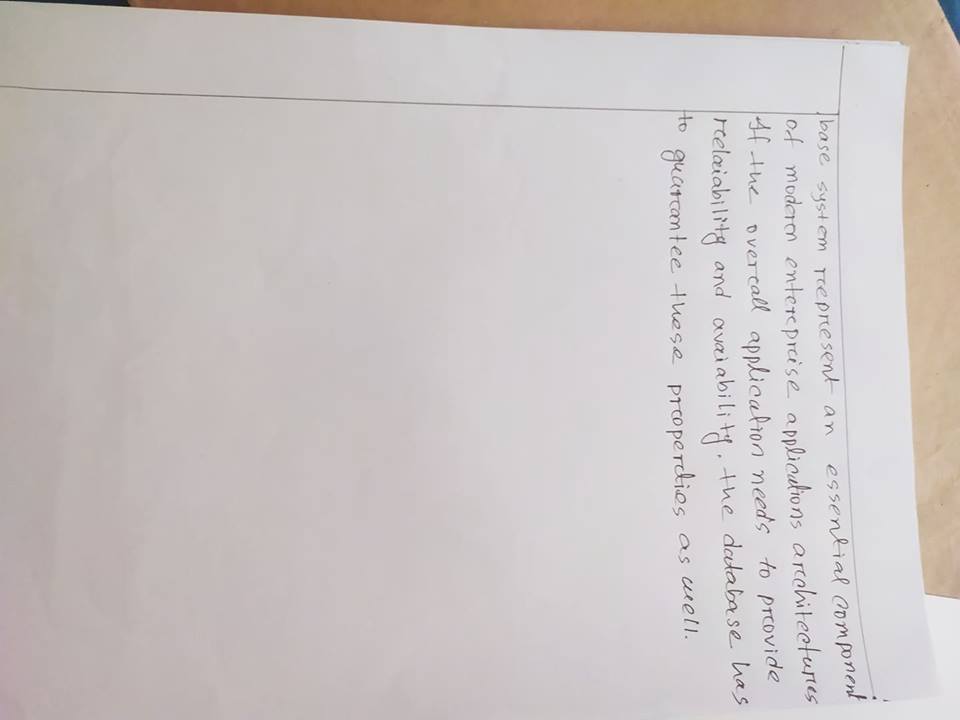 base system represent an essential component
of modern enterprise applications architectures
If the overall application needs to provide
relaiability and avaiability. the database has
to guarantee these properdies as well.